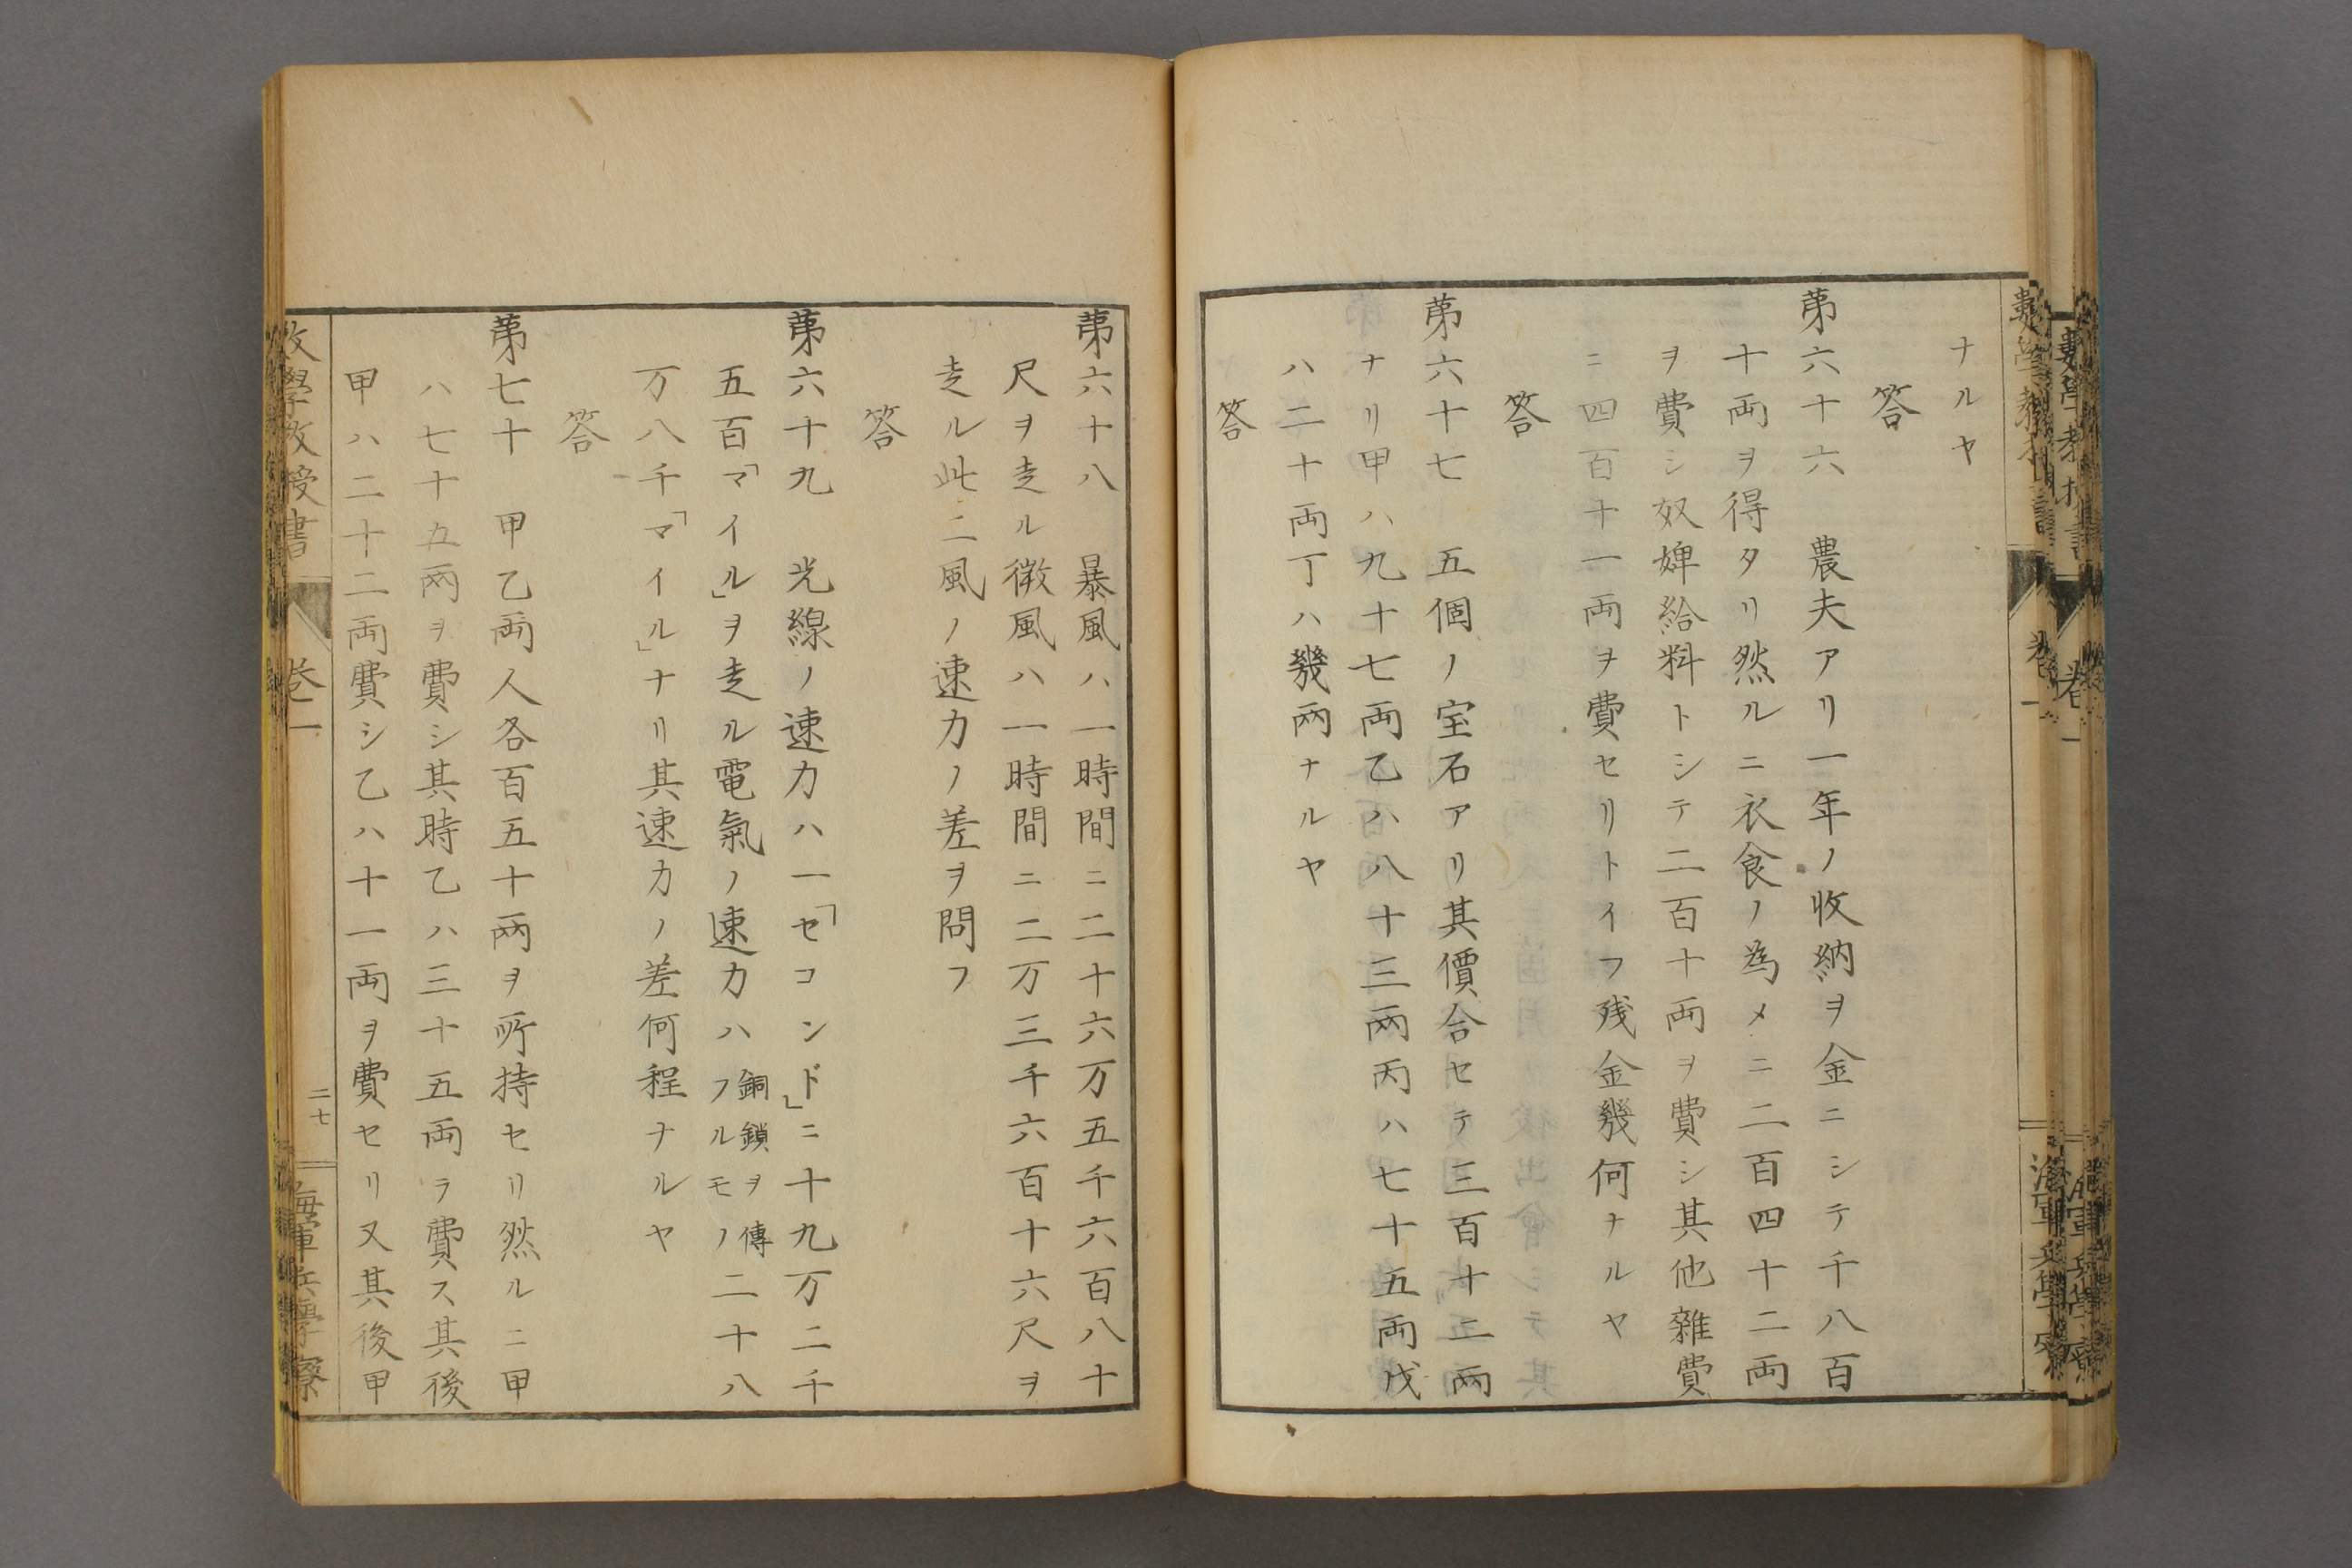 數學教授書
卷一
海軍兵學寮
ナルヤ
答
第六十六　農夫アリ一年ノ收納ヲ金ニシテ千八百
十両ヲ得タリ然ルニ衣食ノ為メニ二百四十二両
ヲ費シ奴婢給料トシテ二百十両ヲ費シ其他雜費
ニ四百十一両ヲ費セリトイフ残金幾何ナルヤ
答
第六十七　五個ノ宝石アリ其價合セテ三百十二兩
ナリ甲ハ九十七両乙ハ八十三兩丙ハ七十五両戊
ハ二十両丁ハ幾兩ナルヤ
答
第六十八　暴風ハ一時間ニ二十六万五千六百八十
尺ヲ走ル微風ハ一時間ニ二万三千六百十六尺ヲ
走ル此二風ノ速力ノ差ヲ問フ
答
第六十九　光線ノ速力ハ一「セコンド」ニ十九万二千
五百「マイル」ヲ走ル電氣ノ速力ハ銅鎖ヲ傳フルモノ二十八
万八千「マイル」ナリ其速力ノ差何程ナルヤ
答
第七十　甲乙両人各百五十兩ヲ所持セリ然ルニ甲
ハ七十五兩ヲ費シ其時乙ハ三十五両ヲ費ス其後
甲ハ二十二両費シ乙ハ十一両ヲ費セリ又其後甲
數學教授書
卷一
二七
海軍兵學寮